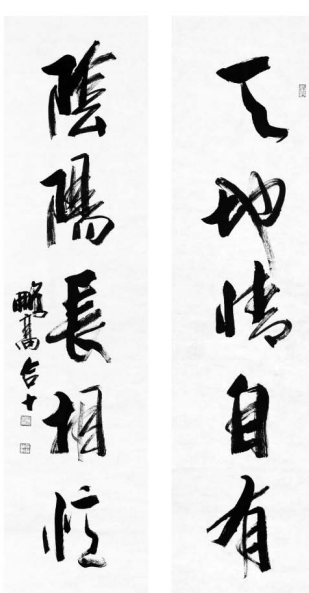 天地情自有
陰陽長相憶
鵬 合十